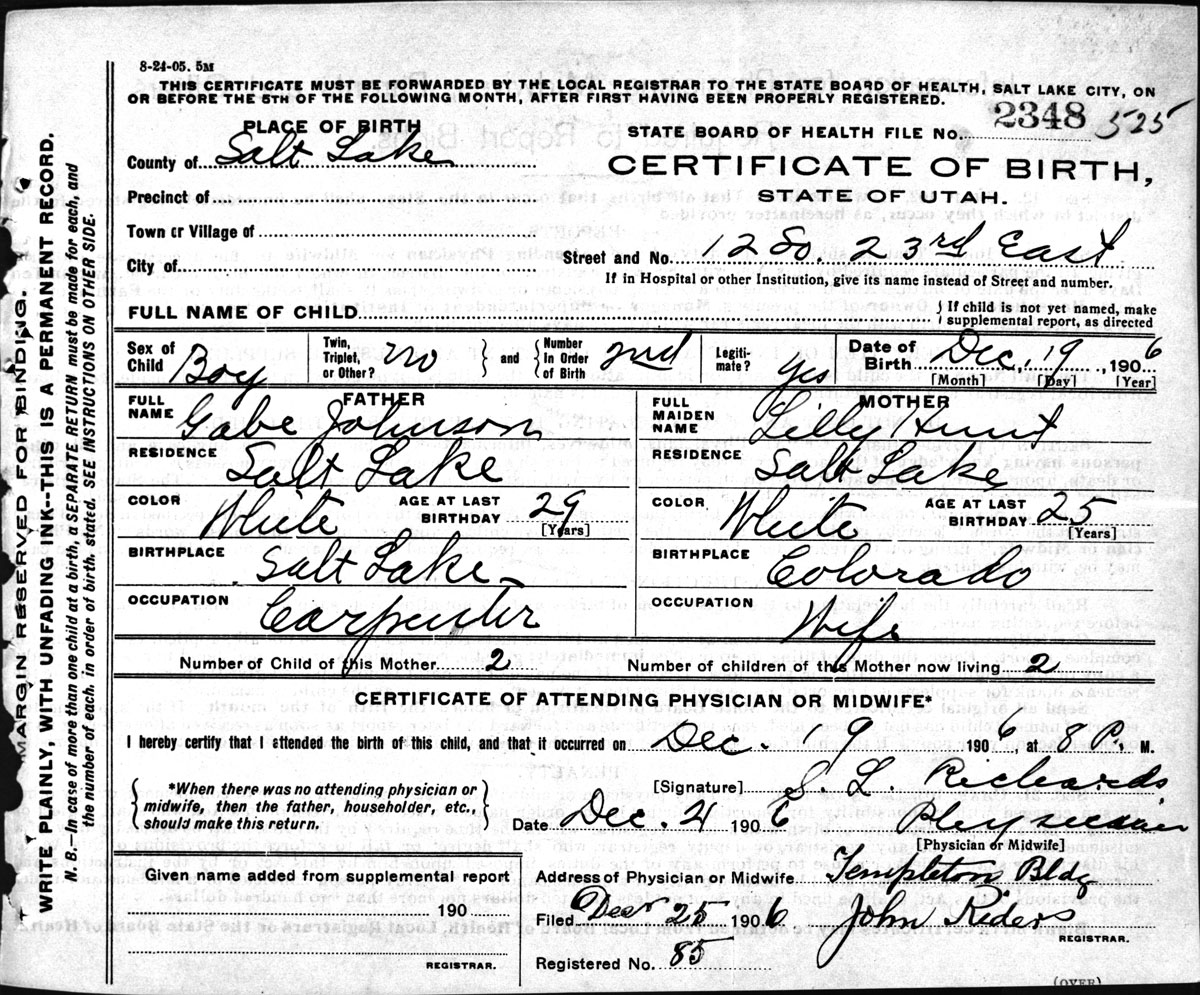 8-24-05. 5M
THIS CERTIFICATE MUST BE FORWARDED BY THE LOCAL REGISTRAR TO THE STATE BOARD OF HEALTH, SALT LAKE CITY, ON
OR BEFORE THE 5TH OF THE FOLLOWING MONTH, AFTER FIRST HAVING BEEN PROPERLY REGISTERED.
MARGIN RESERVED FOR BINDING.
WRITE PLAINLY, WITH UNFADING INK--THIS IS A PERMANENT RECORD.
N. B.--In case of more than one child at a birth, a SEPARATE RETURN must be made for each, and
the number of each, in order of birth, stated. SEE INSTRUCTIONS ON OTHER SIDE.
PLACE OF BIRTH
STATE BOARD OF HEALTH FILE No. 2348 525
County of Salt Lake
CERTIFICATE OF BIRTH,
STATE OF UTAH.
Precinct of
Town or Village of
City of
Street and No. 12 So. 23rd East
If in Hospital or other Institution, give its name instead of Street and number.
FULL NAME OF CHILD
{ If child is not yet named, make
supplemental report, as directed
Sex of Child Boy
Twin, Triplet, or Other? no } and { Number in Order of Birth 2nd
Legiti-mate? yes
Date of Birth Dec, 19, 1906
[Month] [Day] [Year]
FATHER
FULL NAME Gabe Johnson
MOTHER
FULL MAIDEN NAME Lilly Hunt
RESIDENCE Salt Lake
RESIDENCE Salt Lake
COLOR White AGE AT LAST BIRTHDAY 29 [Years]
COLOR White AGE AT LAST BIRTHDAY 25 [Years]
BIRTHPLACE Salt Lake
BIRTHPLACE Colorado
OCCUPATION Carpenter
OCCUPATION Wife
Number of Child of this Mother 2
Number of children of this Mother now living 2
CERTIFICATE OF ATTENDING PHYSICIAN OR MIDWIFE*
I hereby certify that I attended the birth of this child, and that it occurred on Dec. 19 1906, at 8 P. M.
{ *When there was no attending physician or
midwife, then the father, householder, etc.,
should make this return. }
[Signature] S. L. Richards
Date Dec 21 1906 Physician
[Physician or Midwife]
Given name added from supplemental report
190
REGISTRAR.
Address of Physician or Midwife Templeton Bldg
Filed Dec 25 1906 John
REGISTRAR.
Registered No. 85
(OVER)